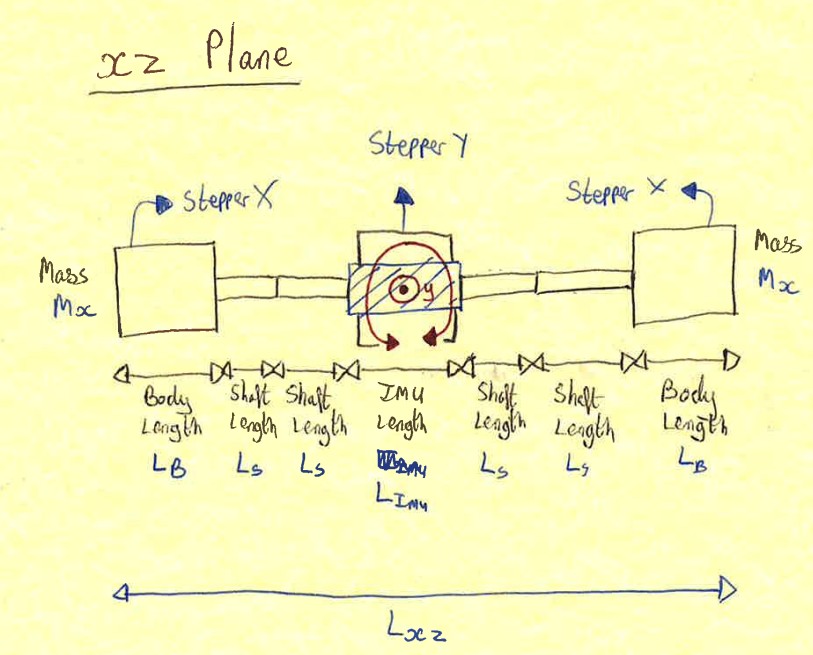 xz Plane
Stepper Y
Stepper X
Stepper X
Mass
Mx
y
Mass
Mx
Body
Length
LB
Shaft
Length
Ls
Shaft
Length
Ls
IMU
Length
LIMU
Shaft
Length
Ls
Shaft
Length
Ls
Body
Length
LB
Lxz